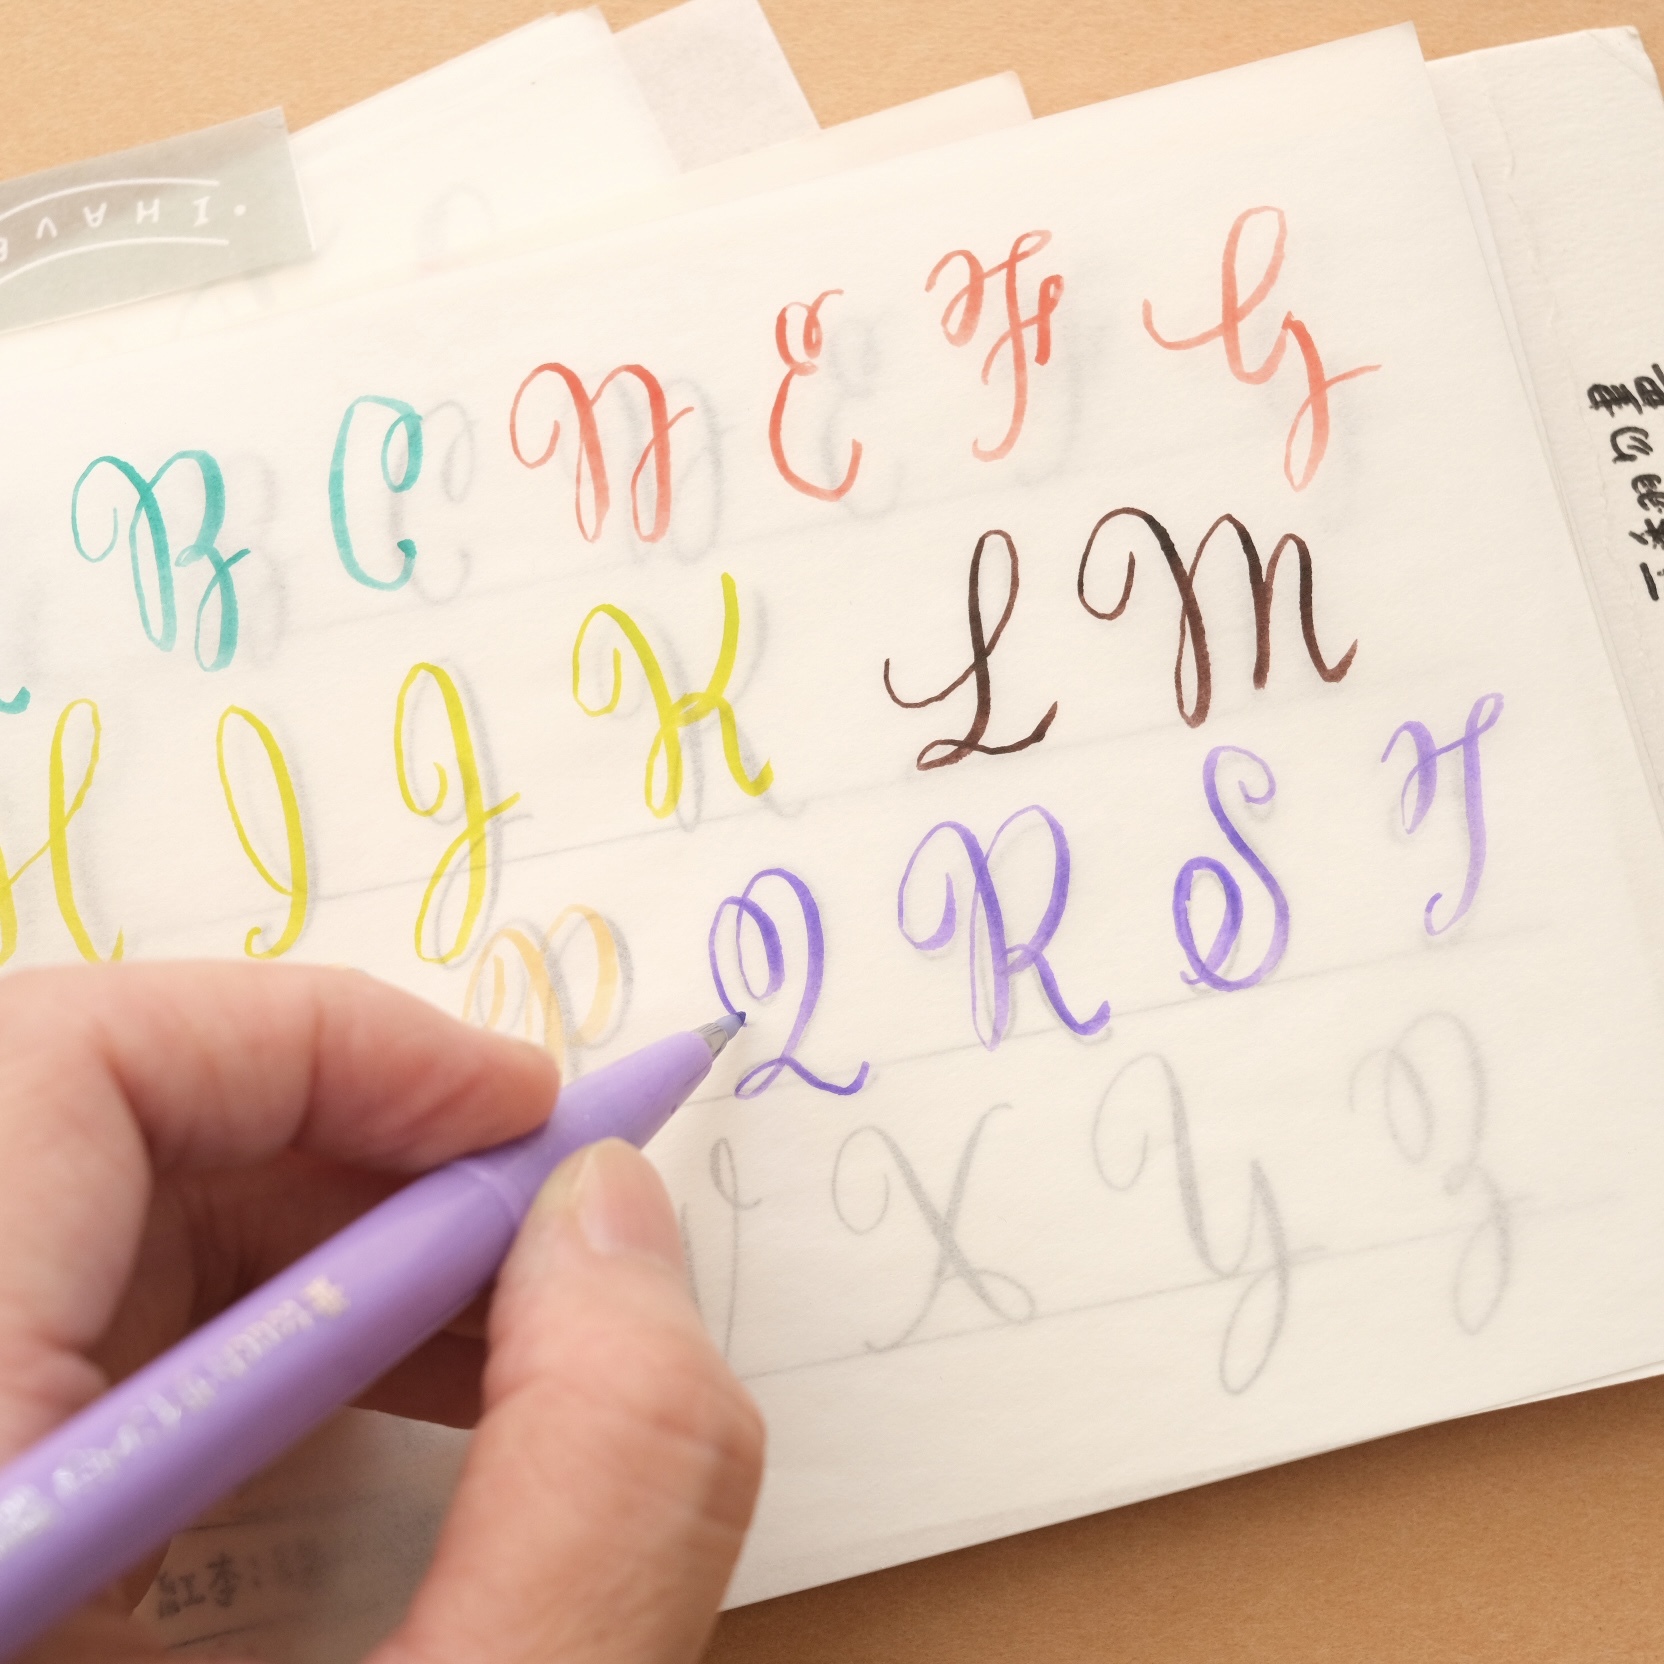 I HAV
B C D E F G
H I J K L M
P Q R S T
X Y Z